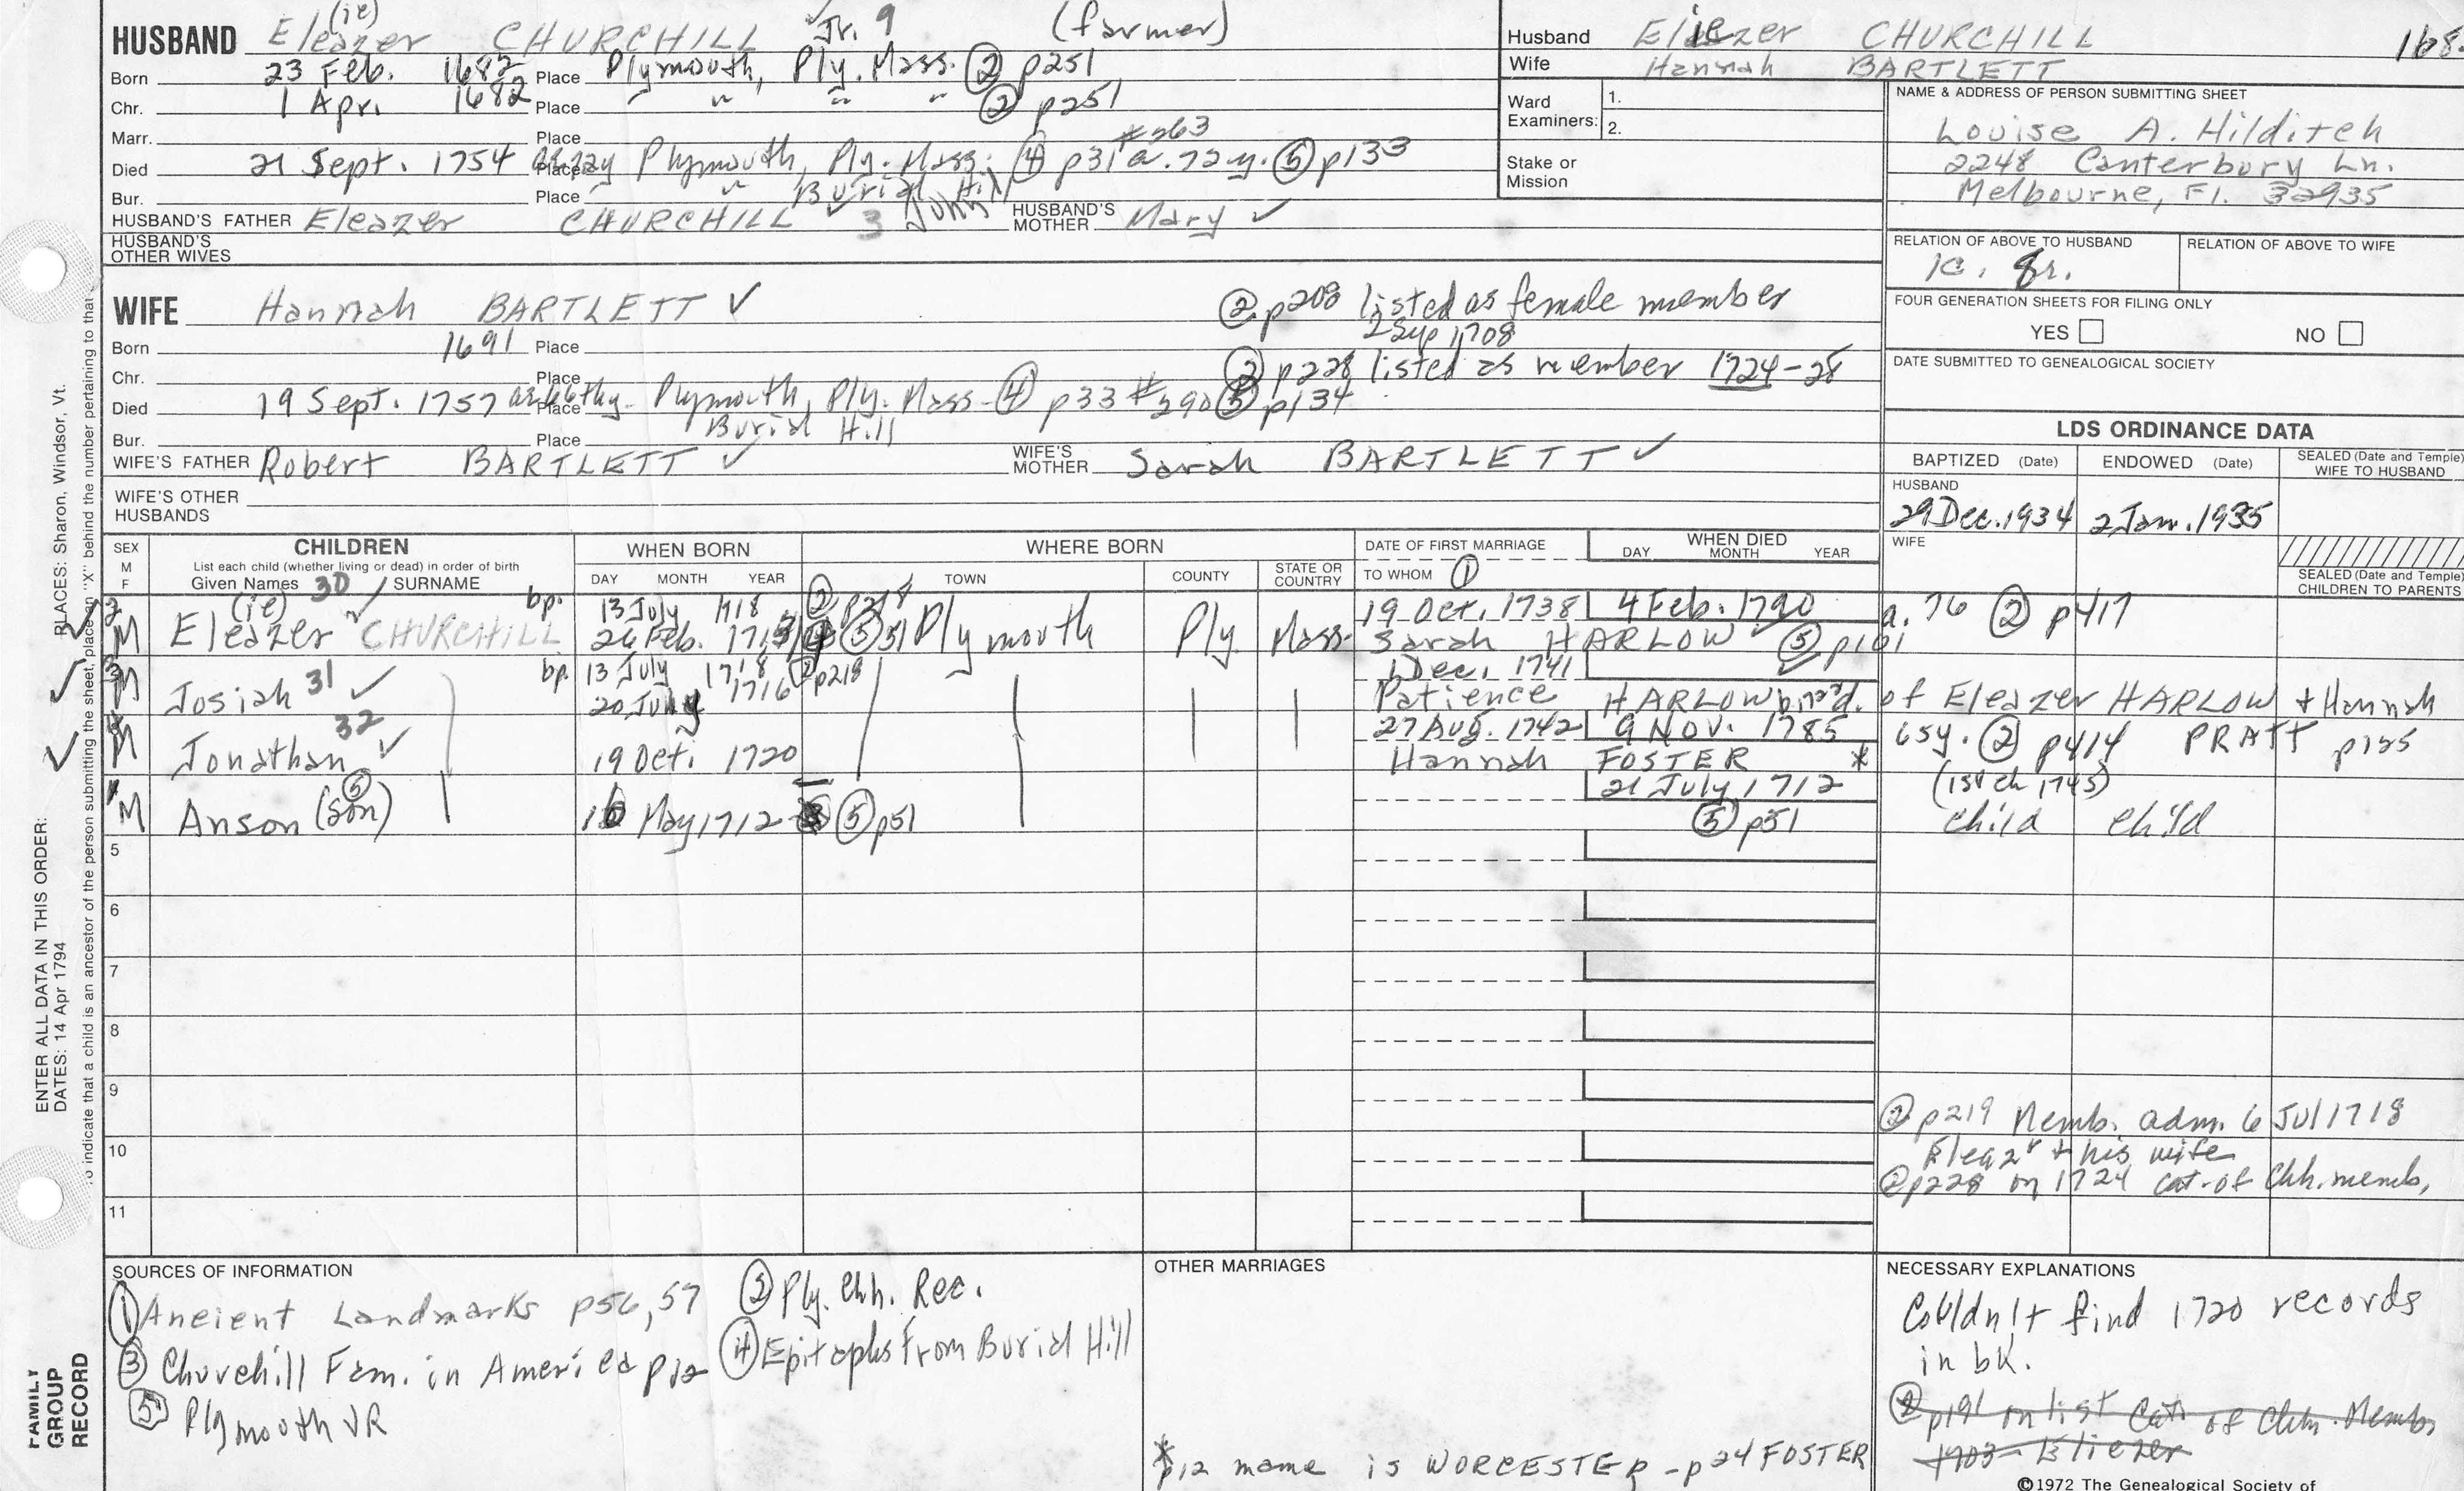 HUSBAND Eleazer (ie) CHURCHILL Jr. 9 (farmer)
Born 23 Feb. 1682 Place Plymouth, Ply. Mass. ② p251
Chr. 1 Apr. 1682 Place " " " " ② p251
Marr. Place #263
Died 21 Sept. 1754 Place Plymouth, Ply. Mass. ④ p31 a. 72 y. ⑤ p133
Bur. Place " " Burial Hill
HUSBAND'S FATHER Eleazer CHURCHILL 3 John HUSBAND'S MOTHER Mary ✓
HUSBAND'S OTHER WIVES
Husband Eliezer CHURCHILL 168
Wife Hannah BARTLETT
Ward Examiners: 1.
2.
Stake or Mission
NAME & ADDRESS OF PERSON SUBMITTING SHEET
Louise A. Hilditch
2248 Canterbury Ln.
Melbourne, Fl. 32935
RELATION OF ABOVE TO HUSBAND RELATION OF ABOVE TO WIFE
1c. 8r.
FOUR GENERATION SHEETS FOR FILING ONLY
YES NO
DATE SUBMITTED TO GENEALOGICAL SOCIETY
WIFE Hannah BARTLETT ✓ ② p208 listed as female member
2 Sep 1708
Born 1691 Place
Chr. Place ② p228 listed as member 1724-28
Died 19 Sept. 1757 Place Plymouth, Ply. Mass. ④ p33 #290 ⑤ p134
Burial Hill
Bur. Place
WIFE'S FATHER Robert BARTLETT ✓ WIFE'S MOTHER Sarah BARTLETT ✓
WIFE'S OTHER HUSBANDS
LDS ORDINANCE DATA
BAPTIZED (Date) ENDOWED (Date) SEALED (Date and Temple) WIFE TO HUSBAND
HUSBAND
29 Dec. 1934 2 Jan. 1935
WIFE
SEALED (Date and Temple) CHILDREN TO PARENTS
SEX M F CHILDREN WHEN BORN WHERE BORN DATE OF FIRST MARRIAGE WHEN DIED
List each child (whether living or dead) in order of birth
Given Names SURNAME DAY MONTH YEAR TOWN COUNTY STATE OR COUNTRY TO WHOM ① DAY MONTH YEAR
(ie) 30 ✓ bp. 13 July 1718 ② 19 Oct. 1738 4 Feb. 1790 a. 76 ② p417
M Eleazer CHURCHILL 26 Feb. ⑤ 51 Plymouth Ply. Mass. Sarah HARLOW ⑤ p101
bp. 13 July 1718 ② p219 1 Dec. 1741
M Josiah 31 ✓ 20 July 1716 Patience HARLOW of Eleazer HARLOW + Hannah
32 27 Aug. 1742 9 Nov. 1785 65y. ② p414 PRATT p125
M Jonathan ✓ 19 Oct. 1720 Hannah FOSTER * (1st ch 1745)
21 July 1712
M Anson (son) ⑤ 16 May 1712 ⑤ p51 ⑤ p51 child child
5
6
7
8
9
10
11
② p219 Memb. adm. 6 Jul 1718
Eleaz r + his wife
② p228 on 1724 cat. of Chh. memb.
SOURCES OF INFORMATION
① Ancient Landmarks p56, 57 ② Ply. Chh. Rec.
③ Churchill Fam. in America p12 ④ Epitaphs From Burial Hill
⑤ Plymouth VR
OTHER MARRIAGES
* p12 name is WORCESTER - p24 FOSTER
NECESSARY EXPLANATIONS
Couldn't find 1720 records
in bk.
② p191 on list Cat. of Chh. Memb.
1703 - Eliezer
©1972 The Genealogical Society of
PLACES: Sharon, Windsor, Vt.
ENTER ALL DATA IN THIS ORDER:
DATES: 14 Apr 1794
o indicate that a child is an ancestor of the person submitting the sheet, place an "X" behind the number pertaining to that
FAMILY GROUP RECORD